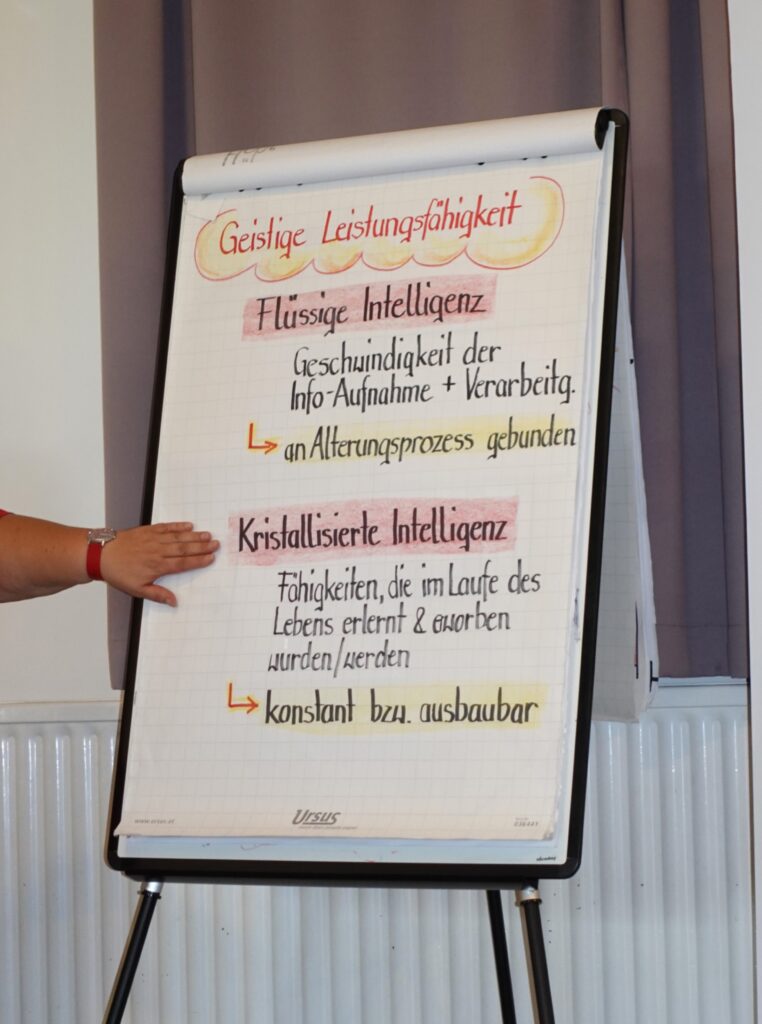 Geistige Leistungsfähigkeit
Flüssige Intelligenz
Geschwindigkeit der
Info-Aufnahme + Verarbeitg.
an Alterungsprozess gebunden
Kristallisierte Intelligenz
Fähigkeiten, die im Laufe des
Lebens erlernt & eworben
wurden/werden
konstant bzw. ausbaubar
www.ursus.at
Ursus